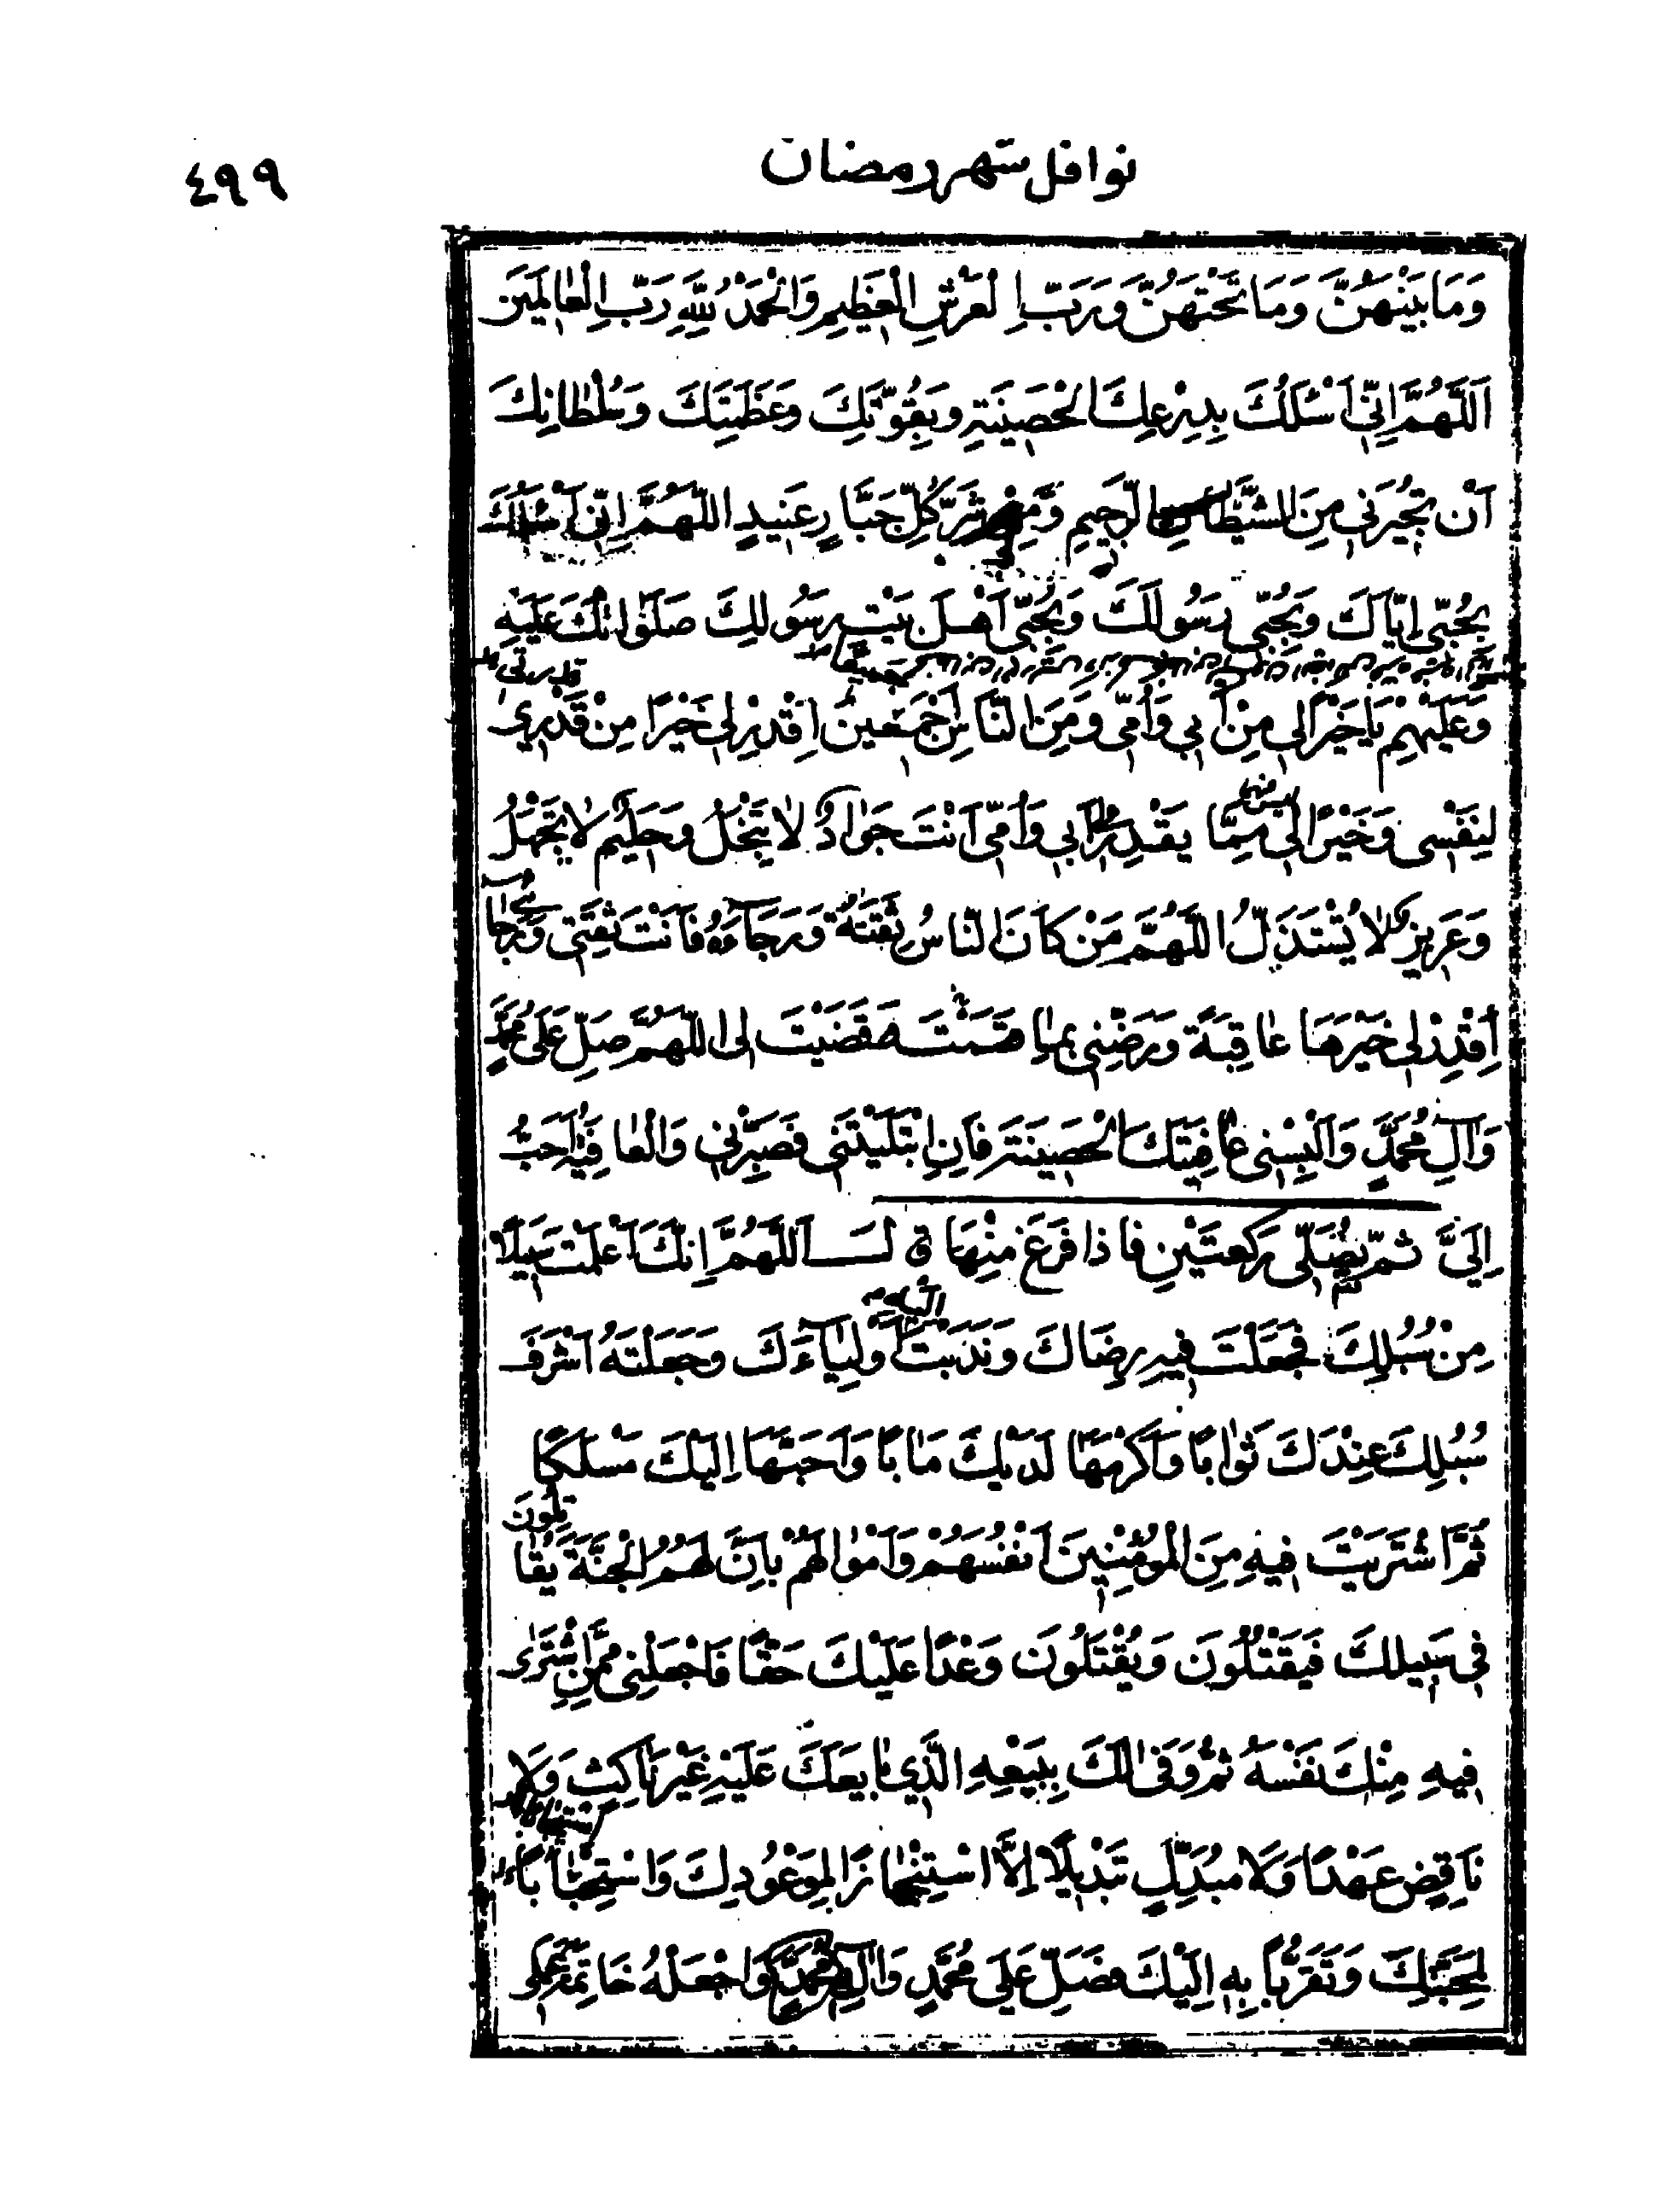 نوافل شهر رمضان
٤٩٩
وَمَا بَيْنَهُنَّ وَمَا تَحْتَهُنَّ وَرَبَّ الْعَرْشِ الْعَظِيمِ وَالْحَمْدُ لِلَّهِ رَبِّ الْعٰالَمِينَ
اَللَّهُمَّ اِنِّي اَسْئَلُكَ بِدِرْعِكَ الْحَصِينَةِ وَبِقُوَّتِكَ وَعَظَمَتِكَ وَسُلْطٰانِكَ
اَنْ تُجِيرَنِي مِنَ الشَّيْطٰانِ الرَّجِيمِ وَمِنْ شَرِّ كُلِّ جَبَّارٍ عَنِيدٍ اللّٰهُمَّ اِنِّي اَسْئَلُكَ
بِحُبِّي اِيَّاكَ وَبِحُبِّي رَسُولَكَ وَبِحُبِّي اَهْلَ بَيْتِ رَسُولِكَ صَلَوٰاتُكَ عَلَيْهِ
وَعَلَيْهِمْ يَا خَيْرًا لِي مِنْ اَبِي وَاُمِّي وَمِنَ النَّاسِ اَجْمَعِينَ اِقْدِرْ لِي خَيْرًا مِنْ قَدْرِي
لِنَفْسِي وَخَيْرًا لِي مِمَّا يَقْدِرُ لِي اَبِي وَاُمِّي اَنْتَ جَوٰادٌ لٰا يَبْخَلُ وَحَلِيمٌ لٰا يَجْهَلُ
وَعَزِيزٌ لٰا يُسْتَذَلُّ اللَّهُمَّ مَنْ كَانَ النَّاسُ ثِقَتَهُ وَرَجَاءَهُ فَاَنْتَ ثِقَتِي وَرَجٰائِي
اِقْدِرْ لِي خَيْرَهَا عٰاقِبَةً وَرَضِّنِي بِمٰا قَضَيْتَ لِي اللّٰهُمَّ صَلِّ عَلَى مُحَمَّدٍ
وَآلِ مُحَمَّدٍ وَاَلْبِسْنِي عٰافِيَتَكَ الْحَصِينَةَ فَاِنِ ابْتَلَيْتَنِي فَصَبِّرْنِي وَالْعٰافِيَةُ اَحَبُّ
اِلَيَّ ثمّ يُصَلِّي رَكْعَتَيْنِ فَاذا فَرَغَ مِنْهَا قٰالَ اَللَّهُمَّ اِنَّكَ اَعْلَمْتَ سَبِيلًا
مِنْ سُبُلِكَ فَجَعَلْتَ فِيهِ رِضَاكَ وَنَدَبْتَ اِلَيْهِ اَوْلِيٰاءَكَ وَجَعَلْتَهُ اَشْرَفَ
سُبُلِكَ عِنْدَكَ ثَوٰابًا وَاَكْرَمَهَا لَدَيْكَ مَاٰبًا وَاَحَبَّهَا اِلَيْكَ مَسْلَكًا
ثُمَّ اشْتَرَيْتَ فِيهِ مِنَ الْمُؤْمِنِينَ اَنْفُسَهُمْ وَاَمْوٰالَهُمْ بِاَنَّ لَهُمُ الْجَنَّةَ يُقٰاتِلُونَ
فِي سَبِيلِكَ فَيَقْتُلُونَ وَيُقْتَلُونَ وَعْدًا عَلَيْكَ حَقًّا فَاجْعَلْنِي مِمَّنِ اشْتَرٰى
فِيهِ مِنْكَ نَفْسَهُ ثُمَّ وَفٰى لَكَ بِبَيْعِهِ الَّذِي بٰايَعَكَ عَلَيْهِ غَيْرَ نَاكِثٍ وَلَا
نَاقِضٍ عَهْدًا وَلَا مُبَدِّلٍ تَبْدِيلًا اِلَّا اسْتِنْجٰازًا لِمَوْعُودِكَ وَاسْتِيجٰابًا
لِمَحَبَّتِكَ وَتَقَرُّبًا بِهِ اِلَيْكَ فَصَلِّ عَلَى مُحَمَّدٍ وَآلِ مُحَمَّدٍ وَاجْعَلْهُ خَاتِمَةَ عَمَلِي